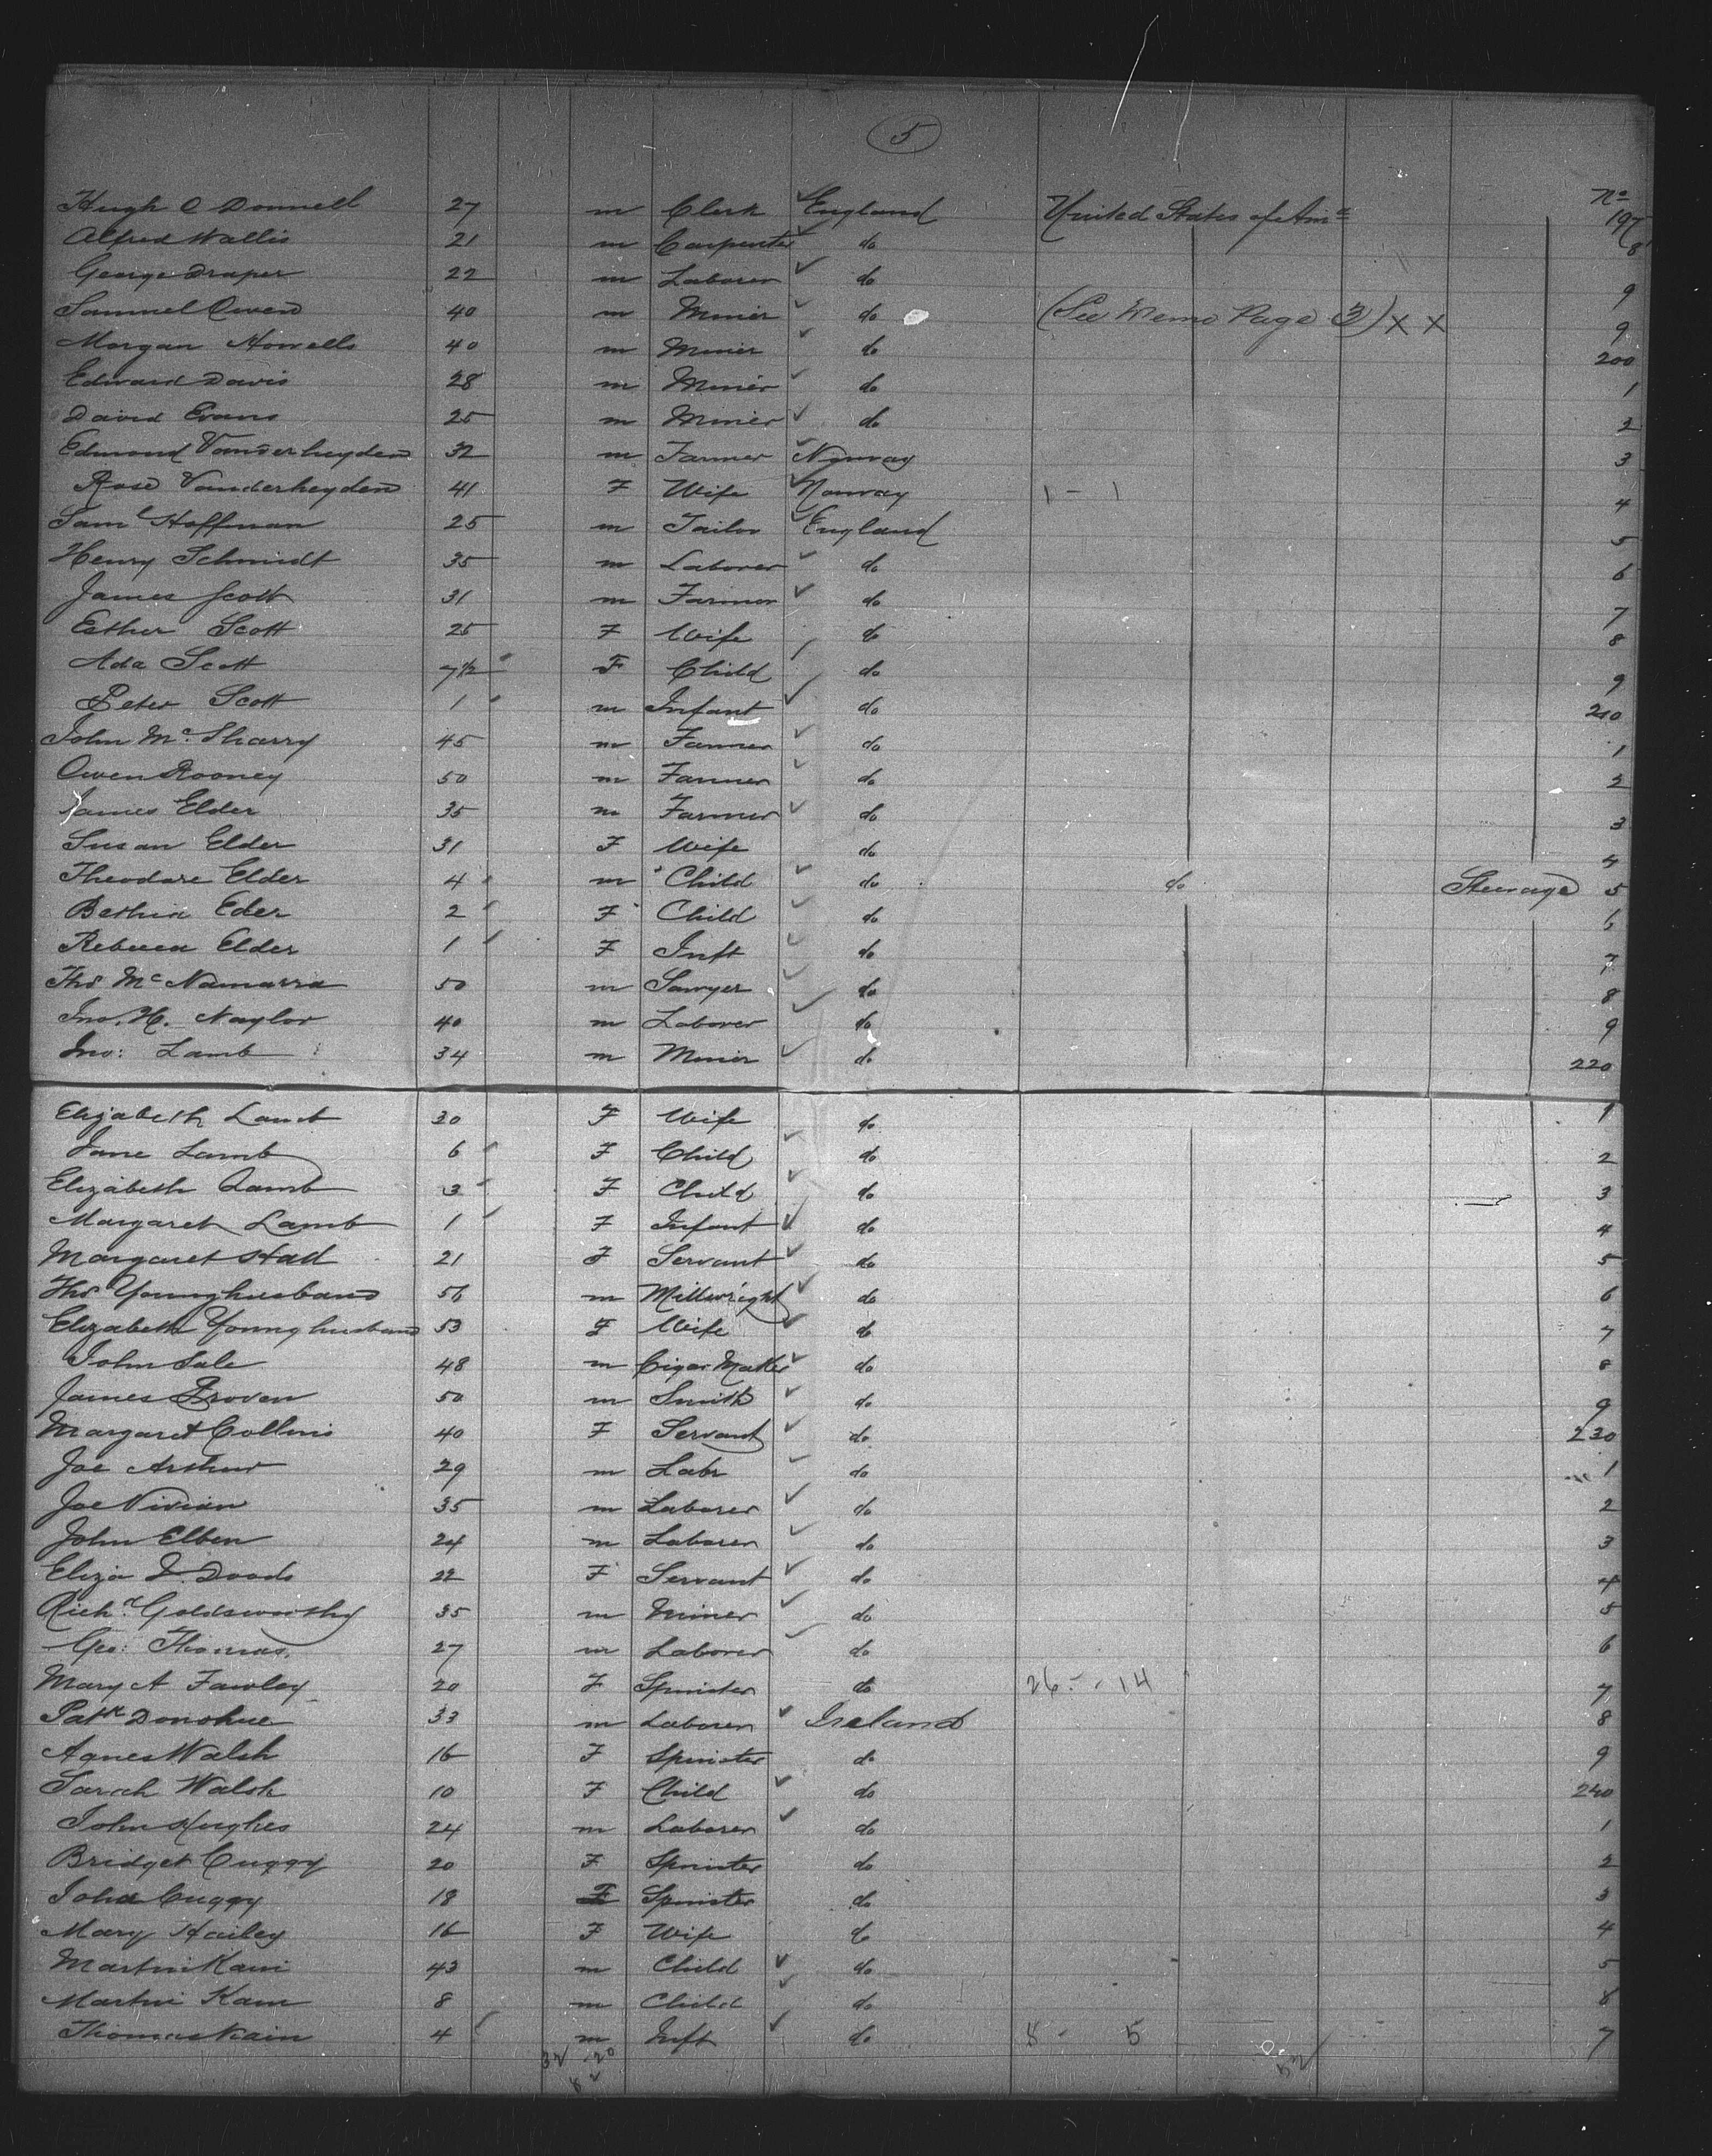 5
No
Hugh O Donnell 27 m Clerk England United States of Ama 197
Alfred Wallis 21 m Carpenter do 8
George Draper 22 m Laborer do 9
Samuel Owen 40 m Miner do (See Memo Page 3) x x 9
Morgan Howells 40 m Miner do 200
Edward Davis 28 m Miner do 1
David Evans 25 m Miner do 2
Edmond Vanderheyden 32 m Farmer Norway 3
Rose Vanderheyden 41 F Wife Norway 1 - 1 4
Saml Hoffman 25 m Tailor England 5
Henry Schmidt 35 m Laborer do 6
James Scott 31 m Farmer do 7
Esther Scott 25 F Wife do 8
Ada Scott 7 1/2 F Child do 9
Peter Scott 1 m Infant do 210
John McSharry 45 m Farmer do 1
Owen Rooney 50 m Farmer do 2
James Elder 35 m Farmer do 3
Susan Elder 31 F Wife do 4
Theodore Elder 4 m Child do do Steerage 5
Bethia Eder 2 F Child do 6
Rebecca Elder 1 F Inft do 7
Thos McNamarra 50 m Sawyer do 8
Jno. H. Naylor 40 m Laborer do 9
Jno: Lamb 34 m Miner do 220
Elizabeth Lamb 30 F Wife do 1
Jane Lamb 6 F Child do 2
Elizabeth Lamb 3 F Child do 3
Margaret Lamb 1 F Infant do 4
Margaret Hall 21 F Servant do 5
Thos Younghusband 56 m Millwright do 6
Elizabeth Younghusband 53 F Wife do 7
John Sale 48 m Cigar Maker do 8
James Proven 50 m Smith do 9
Margaret Collins 40 F Servant do 230
Joe Arthur 29 m Labr do 1
Joe Vivian 35 m Laborer do 2
John Elben 24 m Laborer do 3
Eliza J. Doods 22 F Servant do 4
Richd Goldsworthy 35 m Miner do 5
Geo: Thomas. 27 m Laborer do 6
Mary A Fawley 20 F Spinster do 26 - 14 7
Patk Donohue 33 m Laborer Ireland 8
Agnes Walsh 16 F Spinster do 9
Sarah Walsh 10 F Child do 240
John Hughes 24 m Laborer do 1
Bridget Cuggy 20 F Spinster do 2
Joha Cuggy 18 F Spinster do 3
Mary Hailey 16 F Wife do 4
Martin Kain 43 m Child do 5
Martin Kain 8 m Child do 6
Thomas Kain 4 m Inft do 8 - 5 7
32 20
52